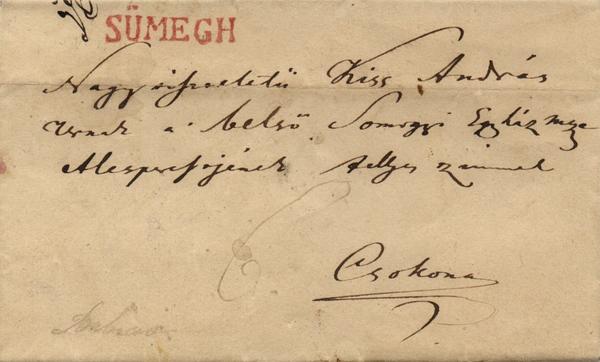 SÜMEGH
Nagy tiszteletű Kiss András
Urnak a' belső Somogyi Egyház megye
Alesperesjének
Csokona